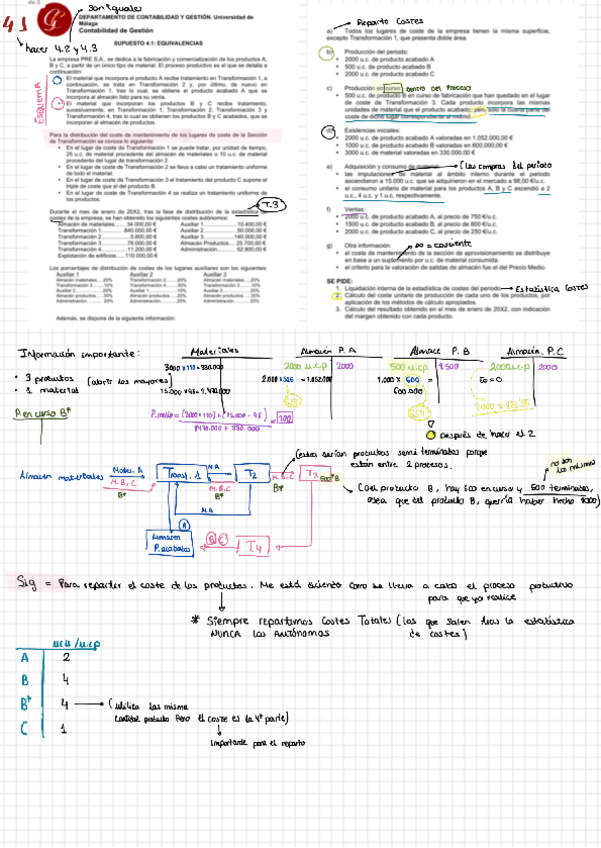 son iguales
4.1
DEPARTAMENTO DE CONTABILIDAD Y GESTIÓN. Universidad de
Málaga
Contabilidad de Gestión
hacer 4.2 y 4.3
SUPUESTO 4.1: EQUIVALENCIAS
Esquema
La empresa PRE S.A., se dedica a la fabricación y comercialización de los productos A,
B y C, a partir de un único tipo de material. El proceso productivo es el que se detalla a
continuación:
El material que incorpora el producto A recibe tratamiento en Transformación 1, a
continuación, se trata en Transformación 2 y, por último, de nuevo en
Transformación 1, tras lo cual, se obtiene el producto acabado A que se
incorpora al almacén listo para su venta.
El material que incorporan los productos B y C recibe tratamiento,
sucesivamente, en Transformación 1, Transformación 2, Transformación 3 y
Transformación 4, tras lo cual se obtienen los productos B y C acabados, que se
incorporan al almacén de productos.
Para la distribución del coste de mantenimiento de los lugares de coste de la Sección
de Transformación se conoce lo siguiente:
• En el lugar de coste Transformación 1 se puede tratar, por unidad de tiempo,
25 u.c. de material procedente del almacén de materiales o 10 u.c. de material
procedente del lugar de transformación 2.
• En el lugar de coste Transformación 2 se lleva a cabo un tratamiento uniforme
de todo el material.
• En el lugar de coste Transformación 3 el tratamiento del producto C supone el
triple de coste que el del producto B.
• En el lugar de coste Transformación 4 se realiza un tratamiento uniforme de
los productos.
T.3
Durante el mes de enero de 20X2, tras la fase de distribución de la estadística de
costes de la empresa, se han obtenido los siguientes costes autónomos:
Almacén de materiales...... 34.000,00 € Auxiliar 1......10.400,00 €
Transformación 1......840.000,00 € Auxiliar 2......50.000,00 €
Transformación 2......5.600,00 € Auxiliar 3......140.000,00 €
Transformación 3......78.000,00 € Almacén Productos... 25.700,00 €
Transformación 4......11.200,00 € Administración......62.800,00 €
Explotación de edificios......110.000,00 €
Los porcentajes de distribución de costes de los lugares auxiliares son los siguientes:
Auxiliar 1 Auxiliar 2 Auxiliar 3
Además, se dispone de la siguiente información:
Reparto Costes
a) Todos los lugares de coste de la empresa tienen la misma superficie,
excepto Transformación 1, que presenta doble área.
b) Producción del periodo:
• 2000 u.c. de producto acabado A
• 500 u.c. de producto acabado B
• 2000 u.c. de producto acabado C
dentro del proceso
c) Producción en curso:
• 500 u.c. de producto B en curso de fabricación que han quedado en el lugar
de coste de Transformación 3. Cada producto incorpora las mismas
unidades de material que el producto acabado, pero solo la cuarta parte del
coste de dicho lugar correspondiente al mismo.
d) Existencias iniciales:
• 2000 u.c. de producto acabado A valoradas en 1.052.000,00 €
• 1000 u.c. de producto acabado B valoradas en 600.000,00 €
• 3000 u.c. de material valoradas en 330.000,00 €
e) Adquisición y consumo de material:
(las compras del periodo
• las imputaciones de material al ámbito interno durante el periodo
ascendieron a 15.000 u.c. que se adquirieron en el mercado a 98,00 €/u.c.
• el consumo unitario de material para los productos A, B y C ascendió a 2
u.c., 4 u.c. y 1 u.c. respectivamente.
f) Ventas:
• 2000 u.c. de producto acabado A, al precio de 750 €/u.c.
• 1500 u.c. de producto acabado B, al precio de 800 €/u.c.
• 2000 u.c. de producto acabado C, al precio de 250 €/u.c.
g) Otra información:
• el coste de mantenimiento de la sección de aprovisionamiento se distribuye
en base a un suplemento por u.c. de material consumida.
• el criterio para la valoración de salidas de almacén fue el del Precio Medio.
SE PIDE:
1. Liquidación interna de la estadística de costes del periodo
Estadística Costes
2. Cálculo del coste unitario de producción de cada uno de los productos, por
aplicación de los métodos de cálculo apropiados.
3. Cálculo del resultado obtenido en el mes de enero de 20X2, con indicación
del margen obtenido con cada producto.
Información importante:
Materiales
Almacén P. A
Almacé P. B
Almacén. P. C
3000 × 110 = 330.000
15.000 × 98 = 1.470.000
2000 u.c.p
2000
2.000 × 526 = 1.052.000
500 u.c.p
1500
1.000 × 600 =
600.000
2000 u.c.p
2000
• 3 productos (abrir los mayores)
• 1 material
P en curso B*
Después de hacer el 2
(estos serían productos semi terminados porque
están entre 2 procesos.
Almacén materiales
Mater. A
M. B, C
B*
Transf. 1
M.A
M. B, C
B*
T2
M. B, C
B*
T3
500 B
M.A
Almacen
P. acabados
A
B C
T4
no son
los mismos
(Del producto B, hay 500 en curso y 500 terminados,
osea que del producto B, quería haber hecho 1000)
Sig = Para repartir el coste de los productos. Me está diciendo como se lleva a cabo el proceso productivo
para que yo realice
* Siempre repartimos Costes Totales (los que salen tras la estadística
NUNCA los Autónomos de costes)
A 2
B 4
B* 4 → (utiliza las misma
cantidad producto Pero el coste es la 4ª parte)
C 1
Importante para el reparto